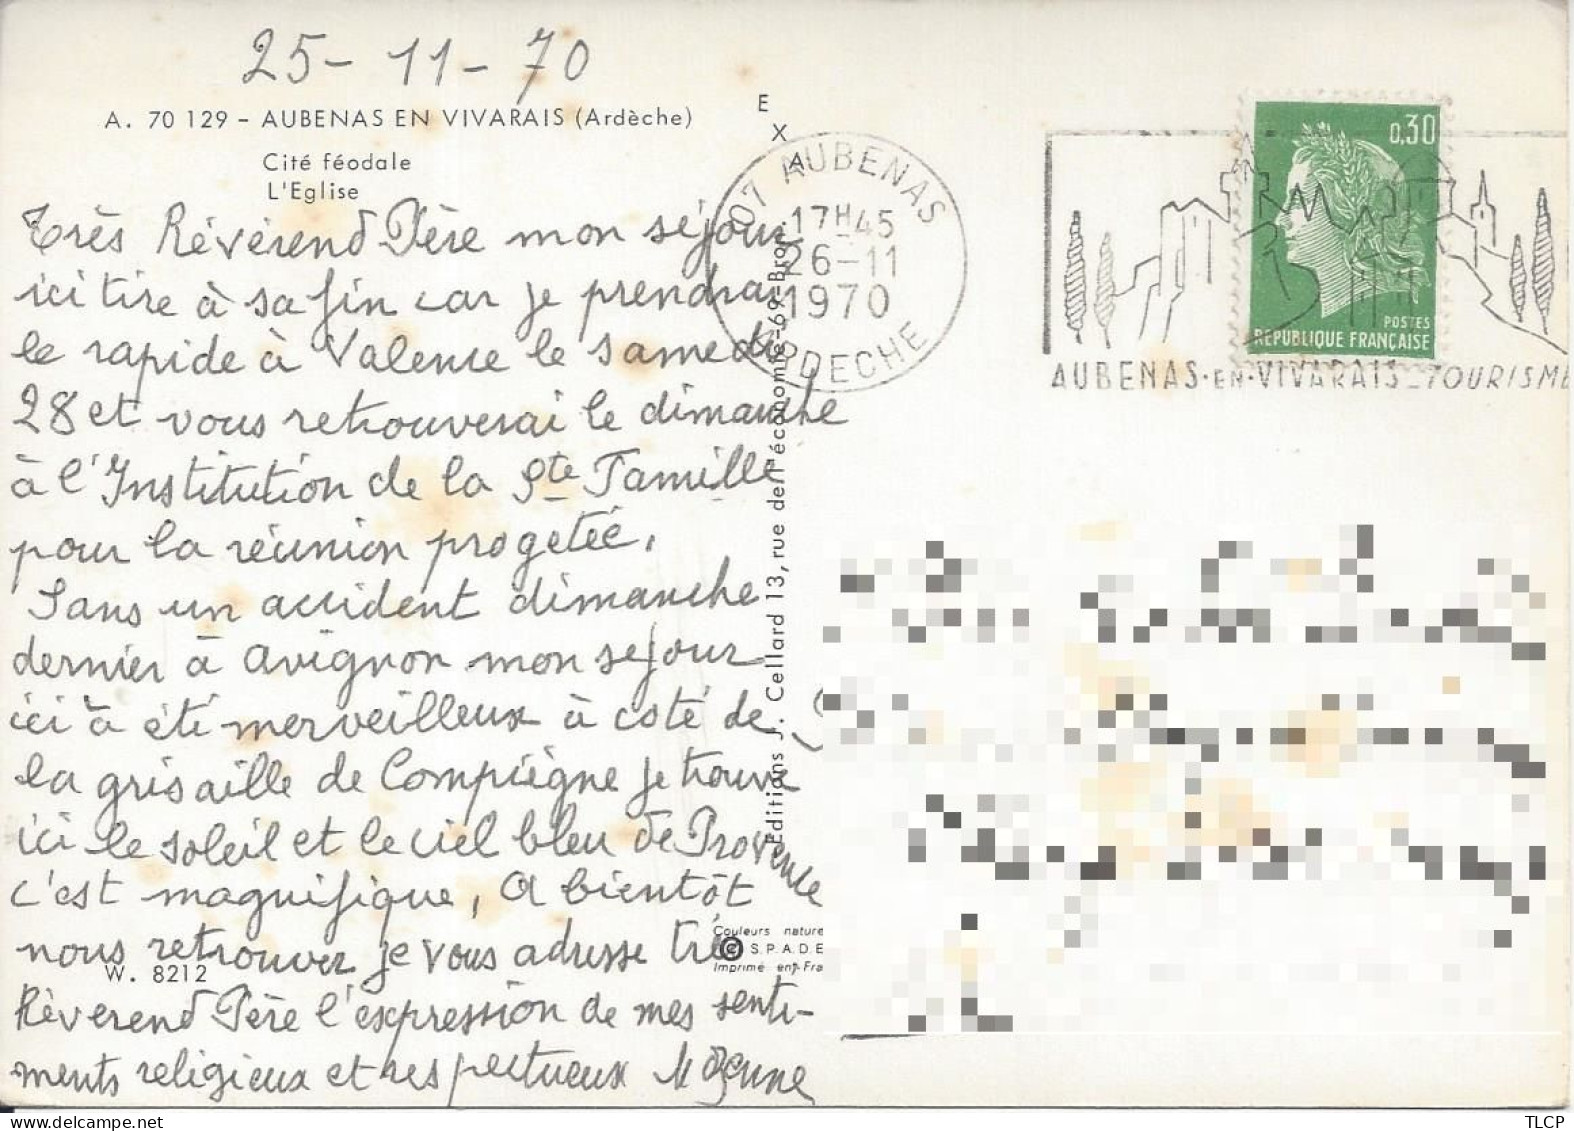 25-11-70
A. 70 129 – AUBENAS EN VIVARAIS (Ardèche)
Cité féodale
L'Eglise
Très Révérend Père mon séjour
ici tire à sa fin car je prendrai
le rapide à Valence le samedi
28 et vous retrouverai le dimanche
à l'Institution de la Ste Famille
pour la réunion progetée.
Sans un accident dimanche
dernier à Avignon mon sejour
ici à été merveilleux à coté de
la grisaille de Compiègne je trouve
ici le soleil et le ciel bleu de Provence
c'est magnifique, A bientôt
nous retrouver je vous adresse très
Rèverend Père l'expression de mes senti-
ments religieux et respectueux
W. 8212
EXA
Editions J. Cellard 13, rue de l'économie-69-Bron
Couleurs nature
© S.P.A.D.E
Imprimé en Fra
07 AUBENAS
17H45
26-11
1970
ARDECHE
0,30
POSTES
REPUBLIQUE FRANÇAISE
AUBENAS·EN·VIVARAIS_TOURISME
TLCP